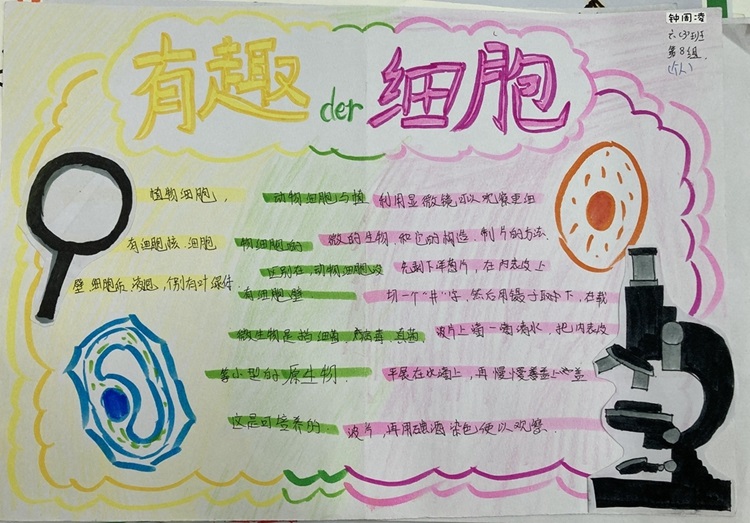 钟雨凌
六(3)班
第8组
有趣der细胞
植物细胞,
有细胞核、细胞
壁 细胞质 液泡, 个别有叶绿体
动物细胞与植
物细胞的
区别在动物细胞没
有细胞壁
微生物是指细菌 病毒、真菌,
等小型的原生物.
这是可营养的
利用显微镜可以观察更细
微的生物和它的构造. 制片的方法.
先剥下洋葱片, 在内表皮上
切一个"井"字, 然后用镊子取下, 在载
玻片上滴一滴清水, 把内表皮
平展在水滴上, 再慢慢覆盖上盖
玻片, 再用碘酒染色便以观察.